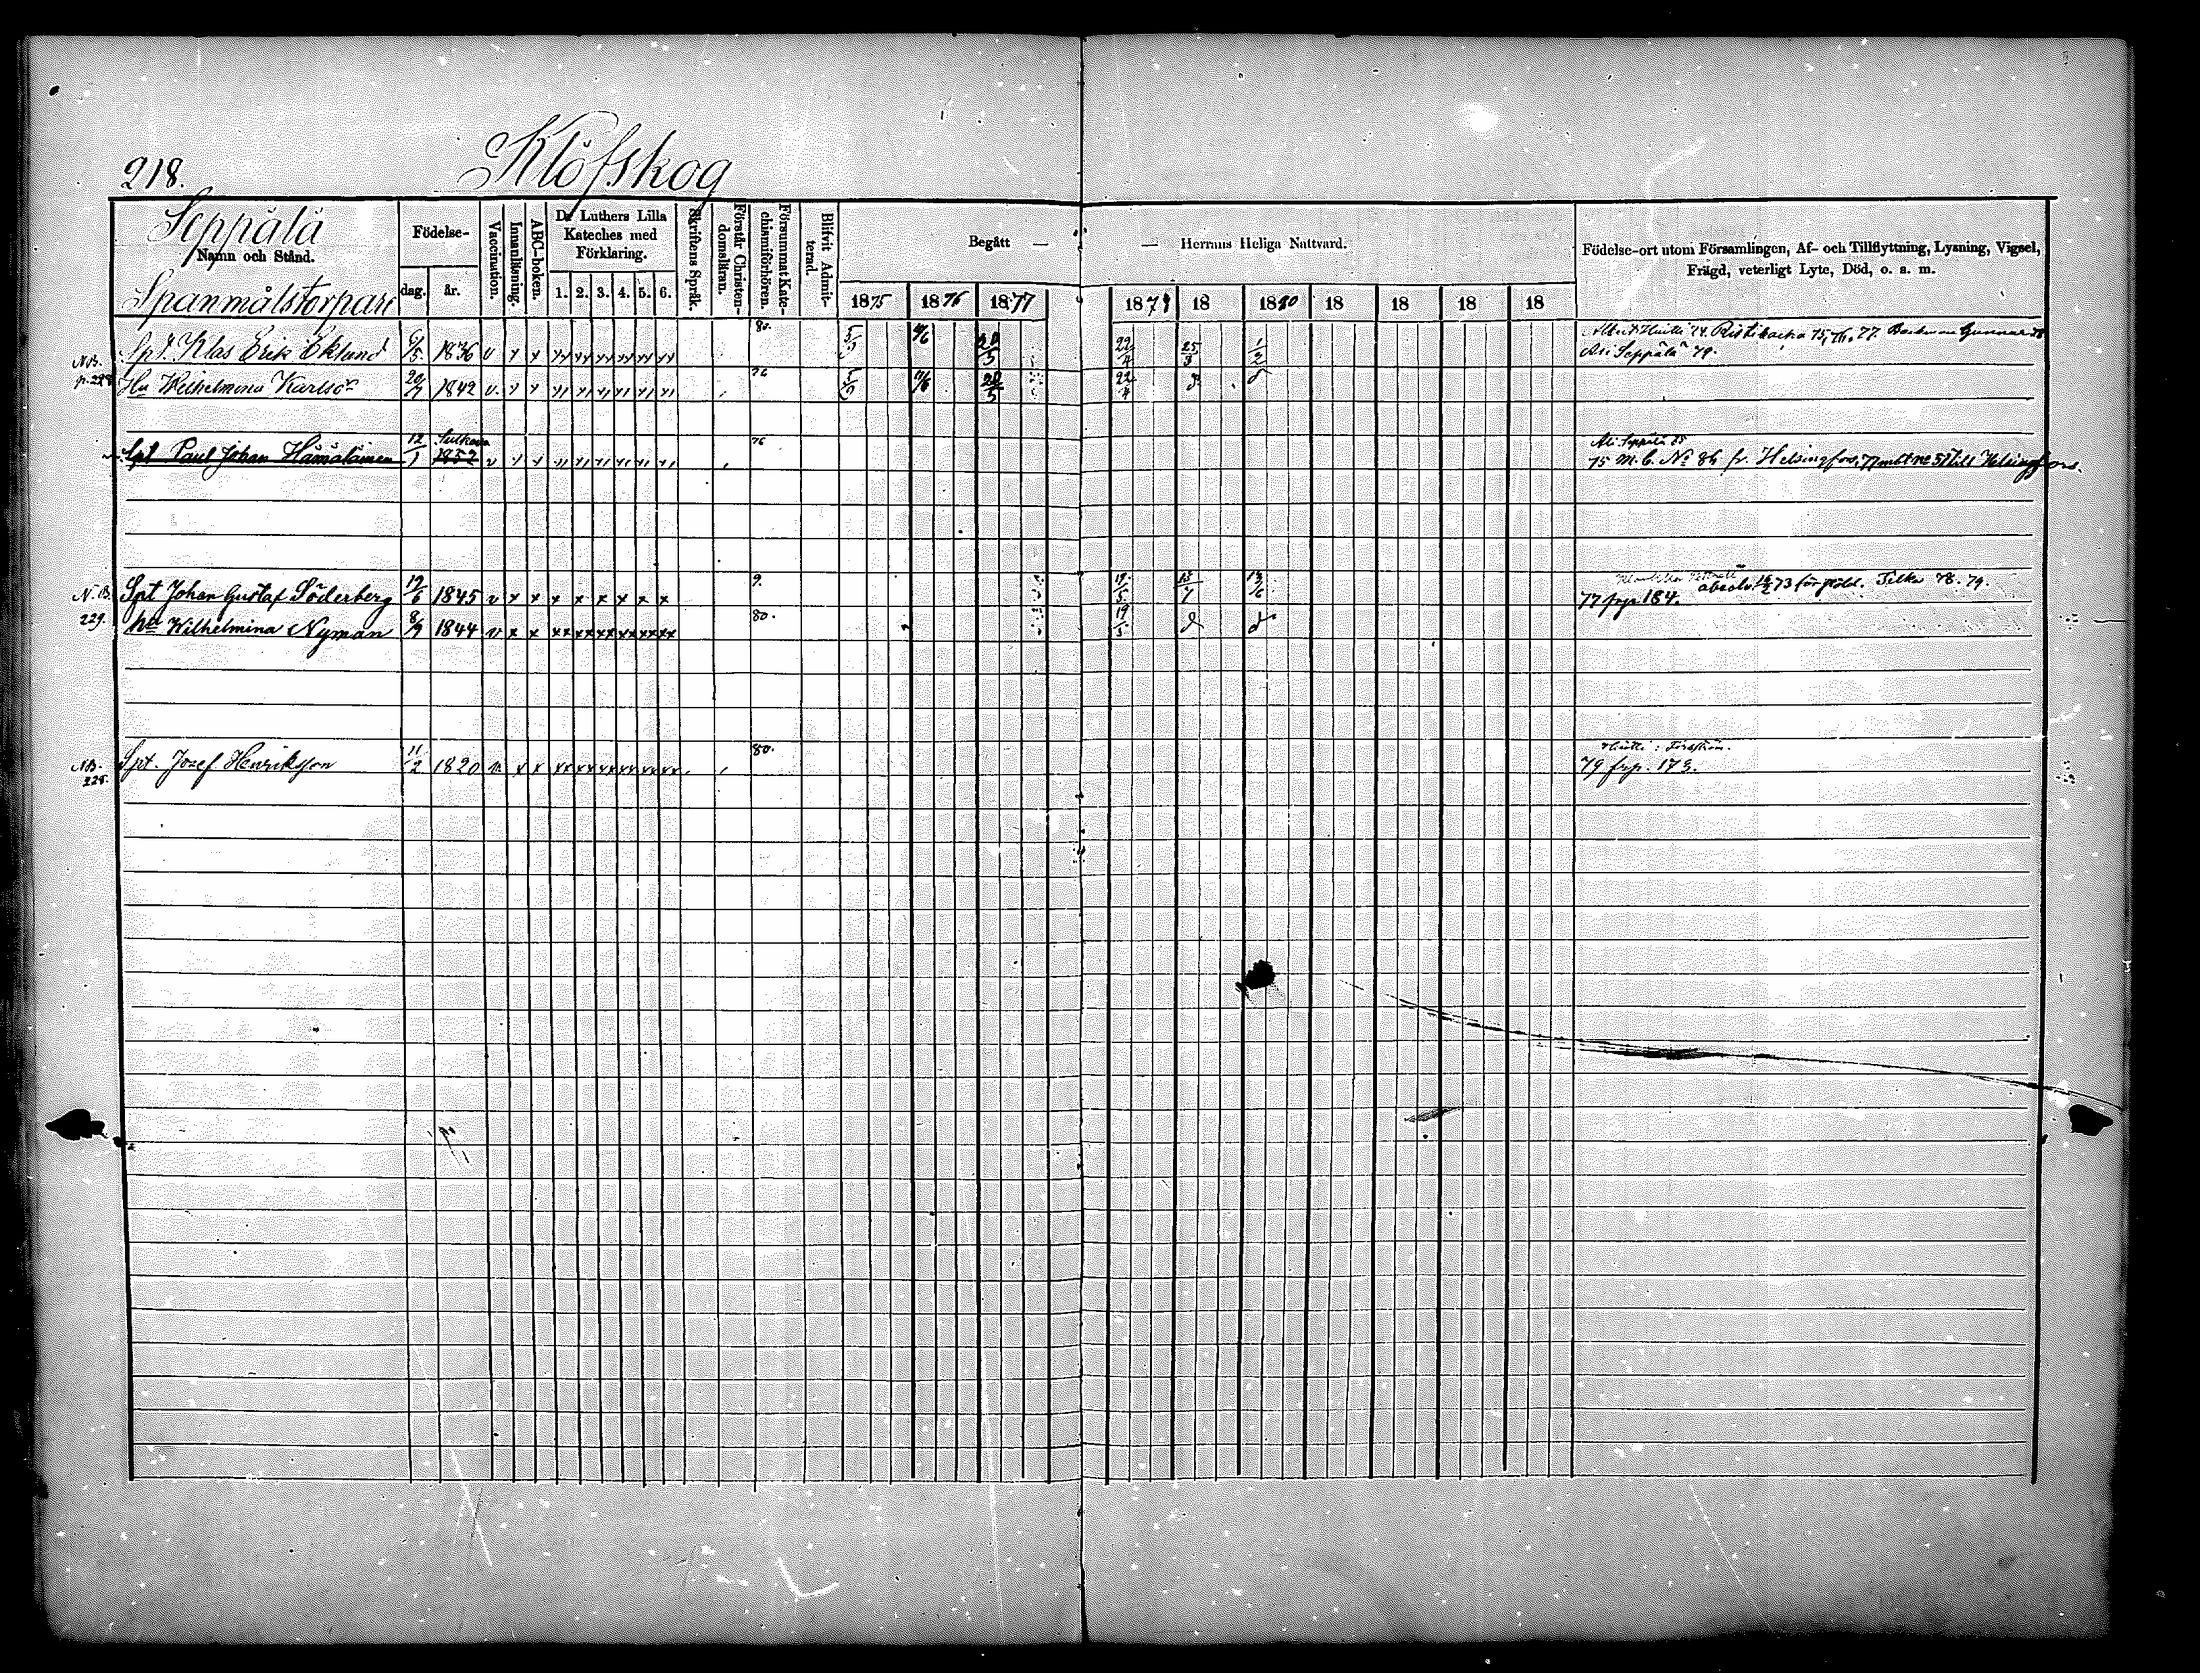 218.
Klöfskog
Seppälä
Namn och Stånd.
Spanmålstorpare
Födelse-
dag. år.
Vaccination.
Innanläsning.
ABC-boken.
D:r Luthers Lilla
Kateches med
Förklaring.
1. 2. 3. 4. 5. 6.
Skriftens Språk.
Förstår Christen-
domsläran.
Försummat Kate-
chismiförhören.
Blifvit Admit-
terad.
Begått —
1875 1876 1877
— Herrans Heliga Nattvard.
1879 18 1880 18 18 18 18
Födelse-ort utom Församlingen, Af- och Tillflyttning, Lysning, Vigsel,
Frägd, veterligt Lyte, Död, o. a. m.
Spt. Klas Erik Eklund 6/5 1836 v x x 80. 5/5 4/6 20/5 22/4 25/3 1/2 Ristibacka 75, 76, 77. Gunnar 78
Ali Seppälä 79.
N.B.
p. 228
Hu Wilhelmina Karlsdr 20/7 1842 v. x x 76 5/5 4/6 20/5 22/4
Sulkava
Ali Seppälä 75
Spt Paul Johan Hämäläinen 12/1 1852 v x x 76 75 m. b. No 86 fr. Helsingfors, 77 mbt no 51 till Helsingfors.
N.B. Spt Johan Gustaf Söderberg 19/6 1845 v x x x x x x x x 9. 19/5 13/6 absolv. 73 Tilka 78. 79.
77 frp 184.
229. Hu Wilhelmina Nyman 8/9 1844 v x x xx xx xx xx xx xx 80. 19/5
NB.
228.
Spt. Josef Henriksson 11/2 1820 v. x x xx xx xx xx xx xx 80.
79 frp. 173.